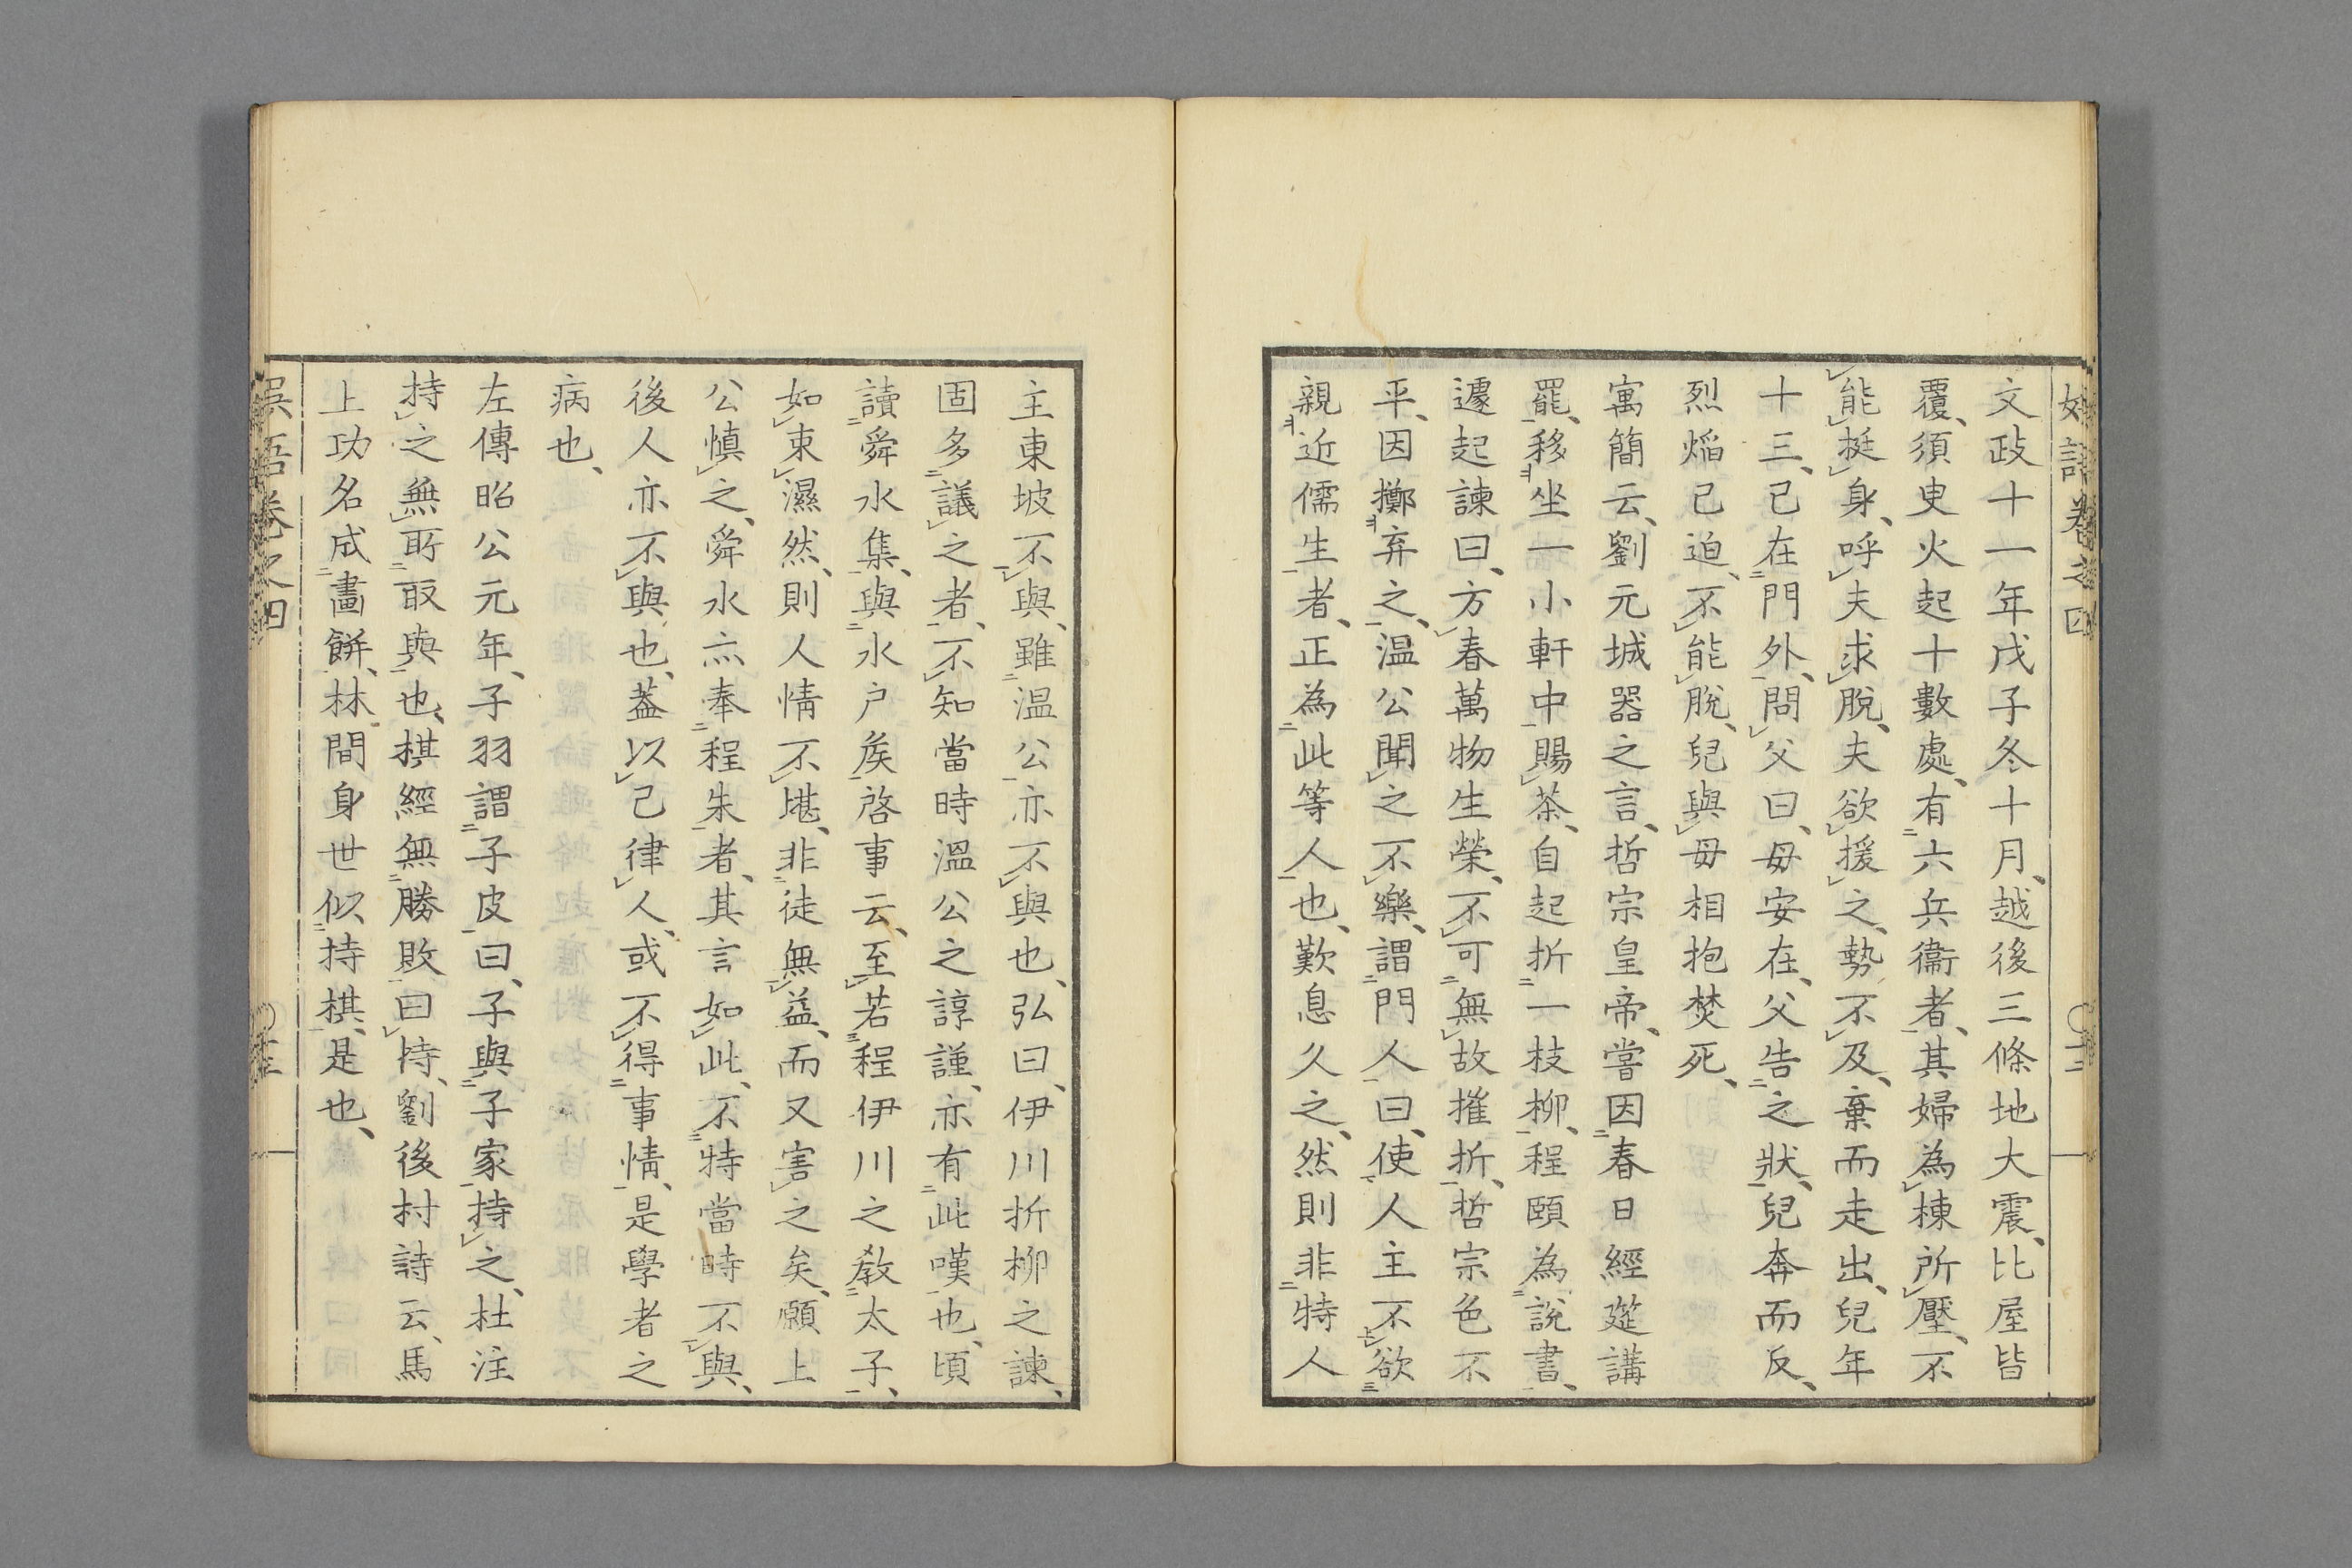 文政十一年戊子冬十月、越後三條地大震、比屋皆
覆、須臾火起十數處、有六兵衞者、其婦為棟所壓、不
能挺身、呼夫求脫、夫欲援之、勢不及、棄而走出、兒年
十三、已在門外、問父曰、毋安在、父告之狀、兒奔而反、
烈焔已迫、不能脫、兒與毋相抱焚死、
寓簡云、劉元城器之言、哲宗皇帝、嘗因春日經筵講
罷、移坐一小軒中賜茶、自起折一枝柳、程頤為說書、
遽起諫曰、方春萬物生榮、不可無故摧折、哲宗色不
平、因擲弃之、温公聞之不樂、謂門人曰、使人主不欲
親近儒生者、正為此等人也、歎息久之、然則非特人
主東坡不與、雖温公亦不與也、弘曰、伊川折柳之諫、
固多議之者、不知當時溫公之諄謹、亦有此嘆也、頃
讀舜水集、與水户矦啓事云、至若程伊川之敎太子、
如束濕然、則人情不堪、非徒無益、而又害之矣、願上
公慎之、舜水亦奉程朱者、其言如此、不特當時不與、
後人亦不與也、葢以己律人、或不得事情、是學者之
病也、
左傳昭公元年、子羽謂子皮曰、子與子家持之、杜注
持之無所取與也、棋經無勝敗曰持、劉後村詩云、馬
上功名成畵餅、林間身世似持棋、是也、